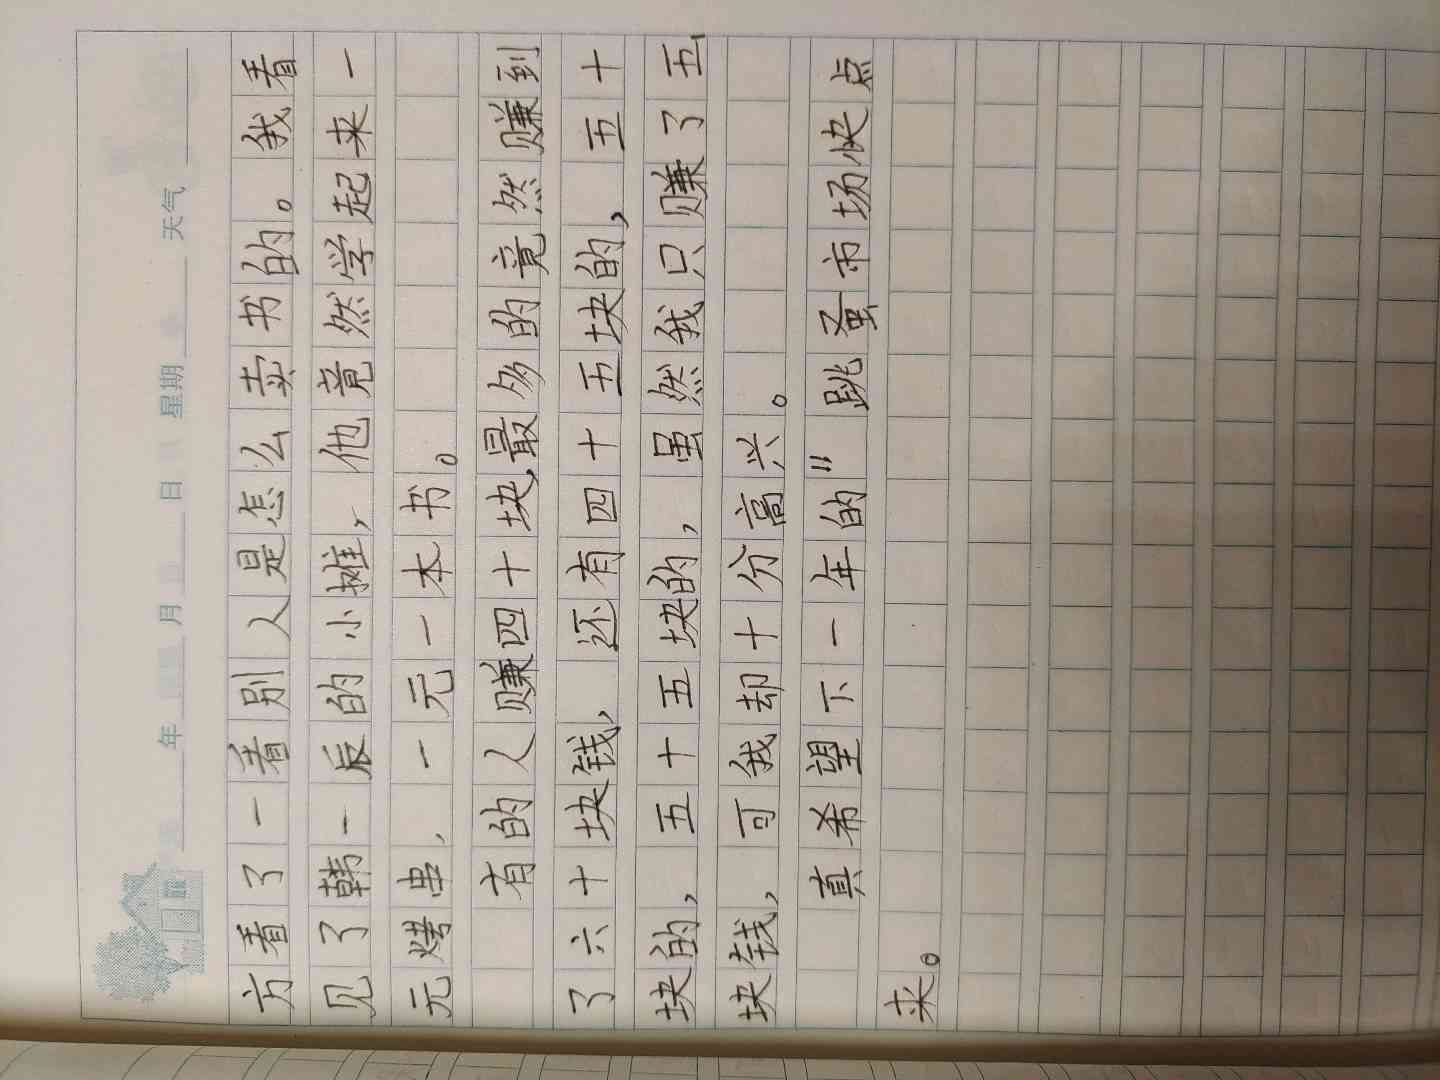 年 月 日 星期 天气
方看了一看别人是怎么卖书的。我看
见了韩一辰的小摊，他竟然学起来一
元爆串，一元一本书。
有的人赚四十块，最多的竟然赚到
了六十块钱，还有四十五块的，五十
块的，五十五块的，虽然我只赚了五
块钱，可我却十分高兴。
真希望下一年的"跳蚤市场快点
来。